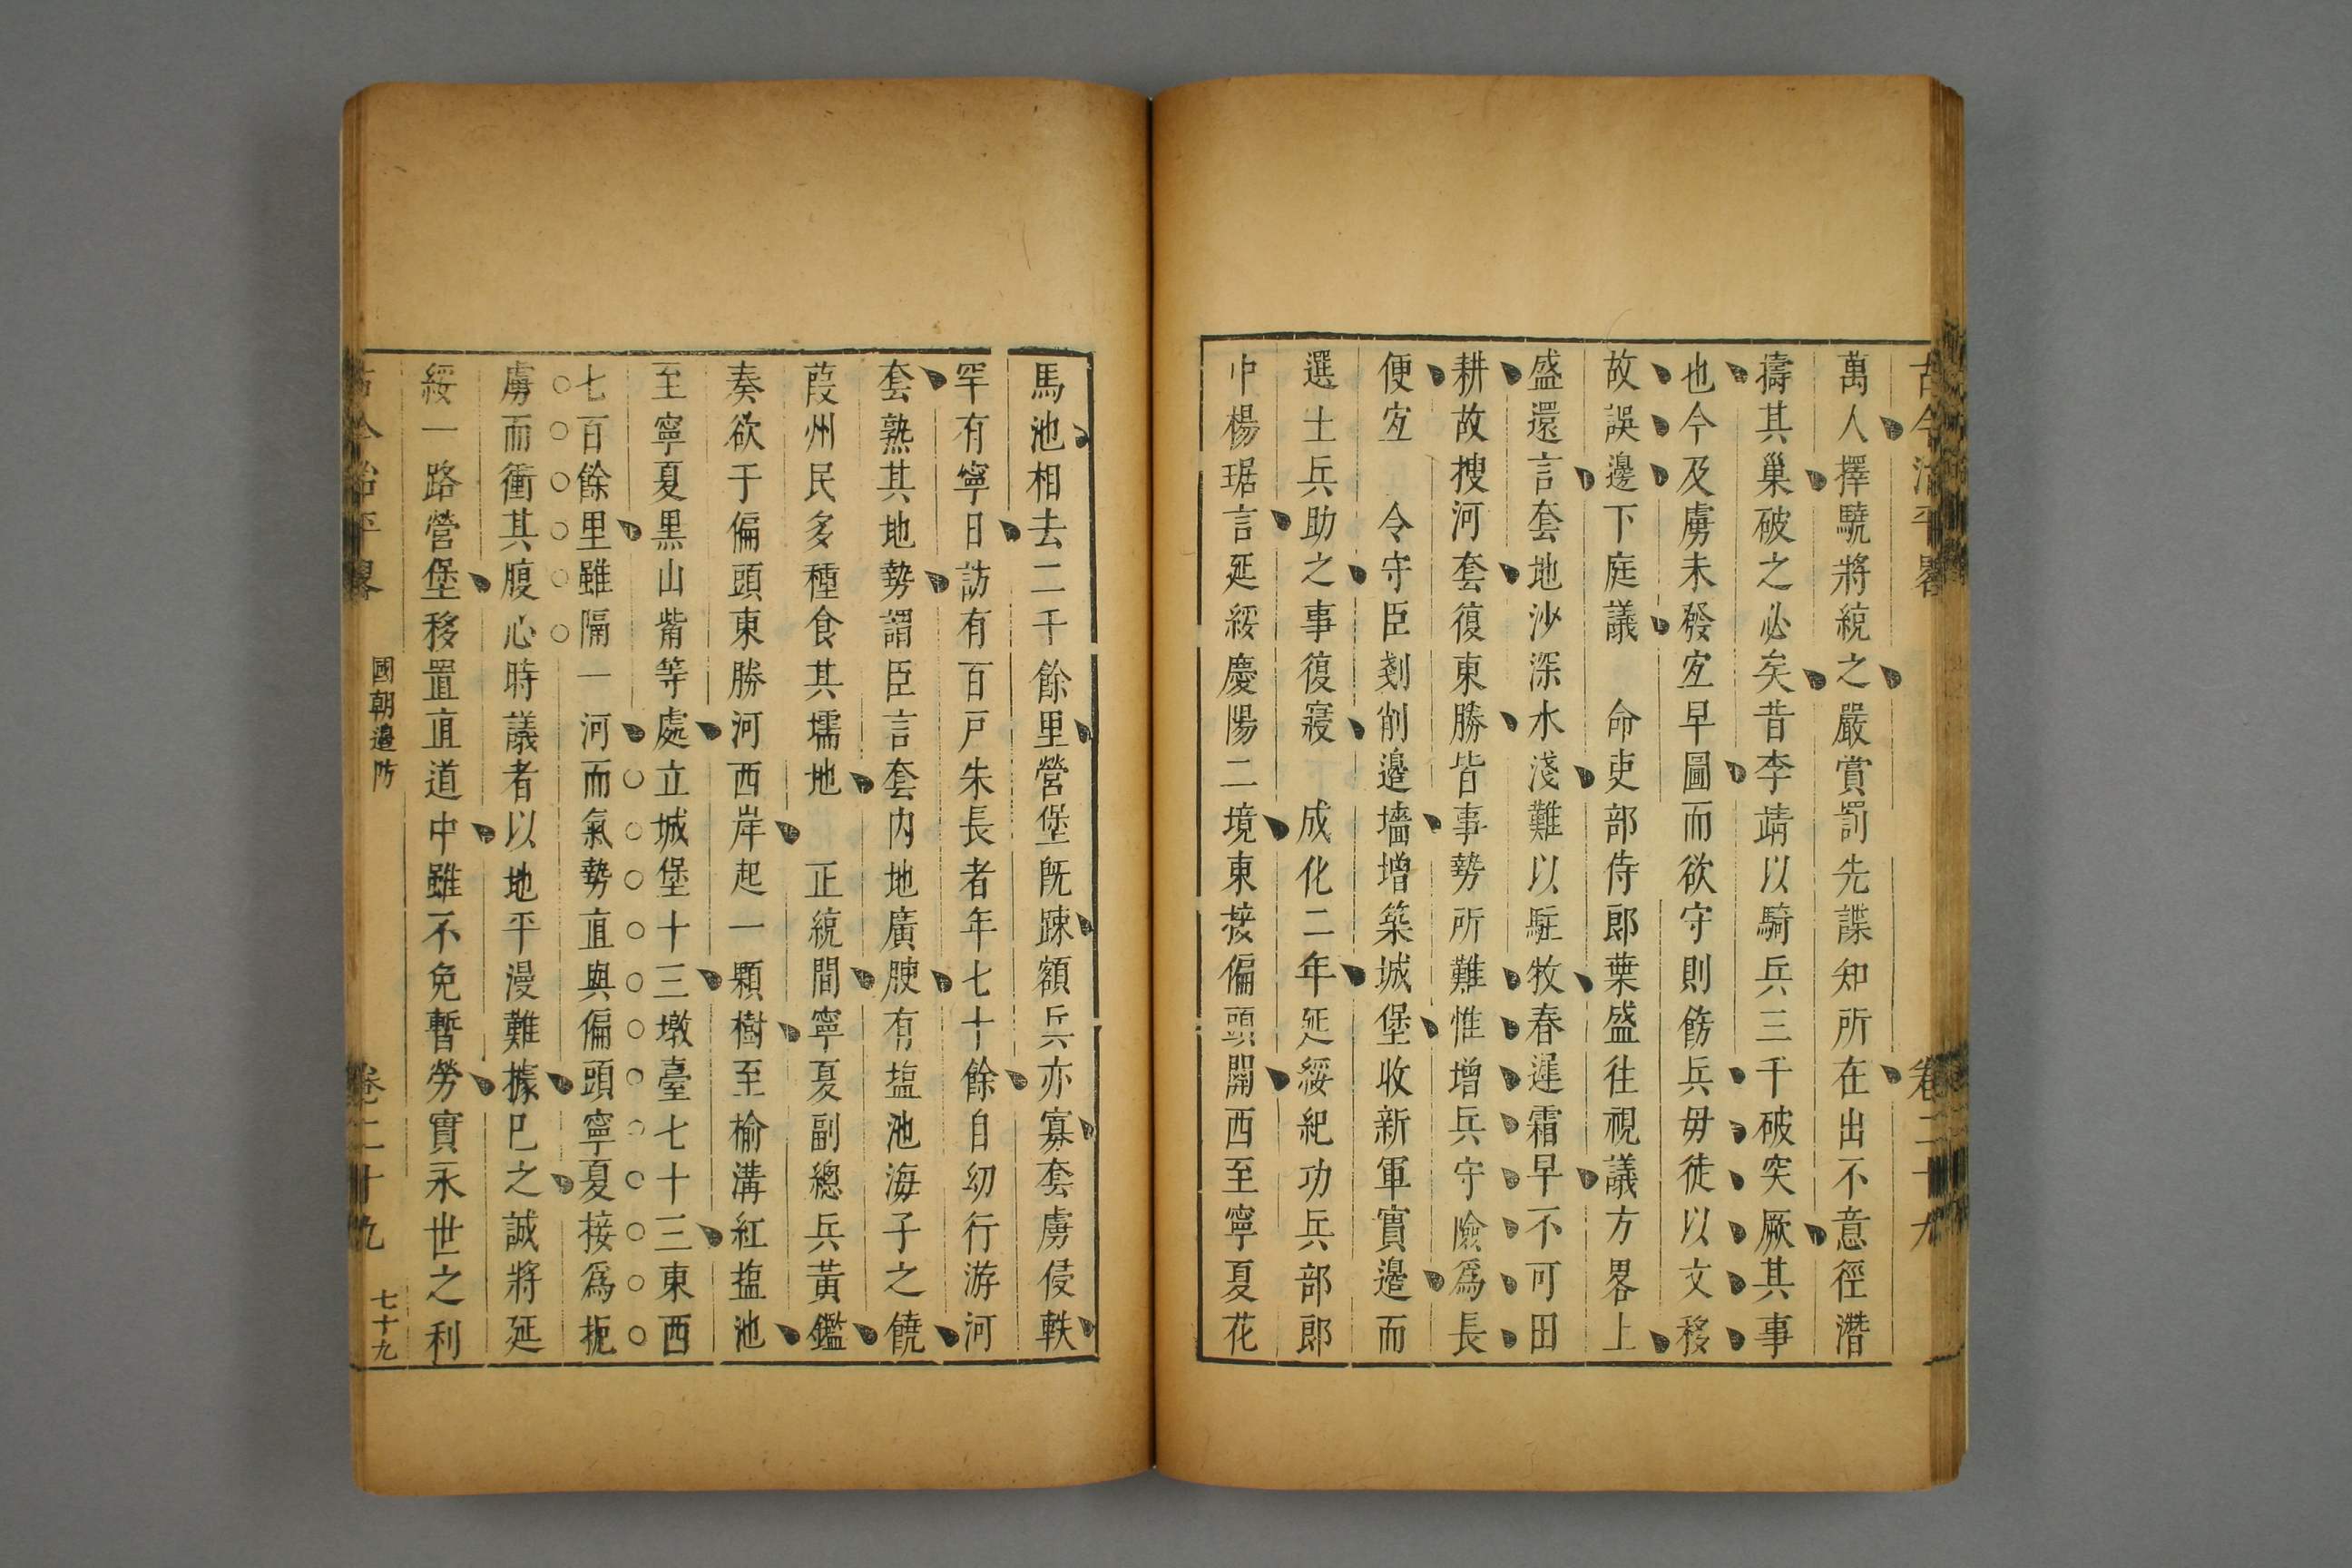 古今治平畧
卷二十九
萬人擇驍將統之嚴賞罰先諜知所在出不意徑潛
擣其巢破之必矣昔李靖以騎兵三千破突厥其事
也今及虜未發宐早圖而欲守則餝兵毋徒以文移
故誤邊下庭議 命吏部侍郎葉盛往視議方畧上
盛還言套地沙深水淺難以駐牧春遲霜早不可田
耕故搜河套復東勝皆事勢所難惟增兵守險爲長
便宐 令守臣剗削邊墻增築城堡收新軍實邊而
選士兵助之事復寢 成化二年延綏紀功兵部郎
中楊琚言延綏慶陽二境東接偏頭關西至寧夏花
馬池相去二千餘里營堡旣踈額兵亦寡套虜侵軼
罕有寧日訪有百戸朱長者年七十餘自幼行游河
套熟其地勢謂臣言套內地廣腴有塩池海子之饒
葭州民多種食其壖地 正統間寧夏副總兵黃鑑
奏欲于偏頭東勝河西岸起一顆樹至榆溝紅塩池
至寧夏黑山觜等處立城堡十三墩臺七十三東西
七百餘里雖隔一河而氣勢直與偏頭寧夏接爲扼
虜而衝其腹心時議者以地平漫難據巳之誠將延
綏一路營堡移置直道中雖不免暫勞實永世之利
古今治平畧
國朝邊防
卷二十九
七十九